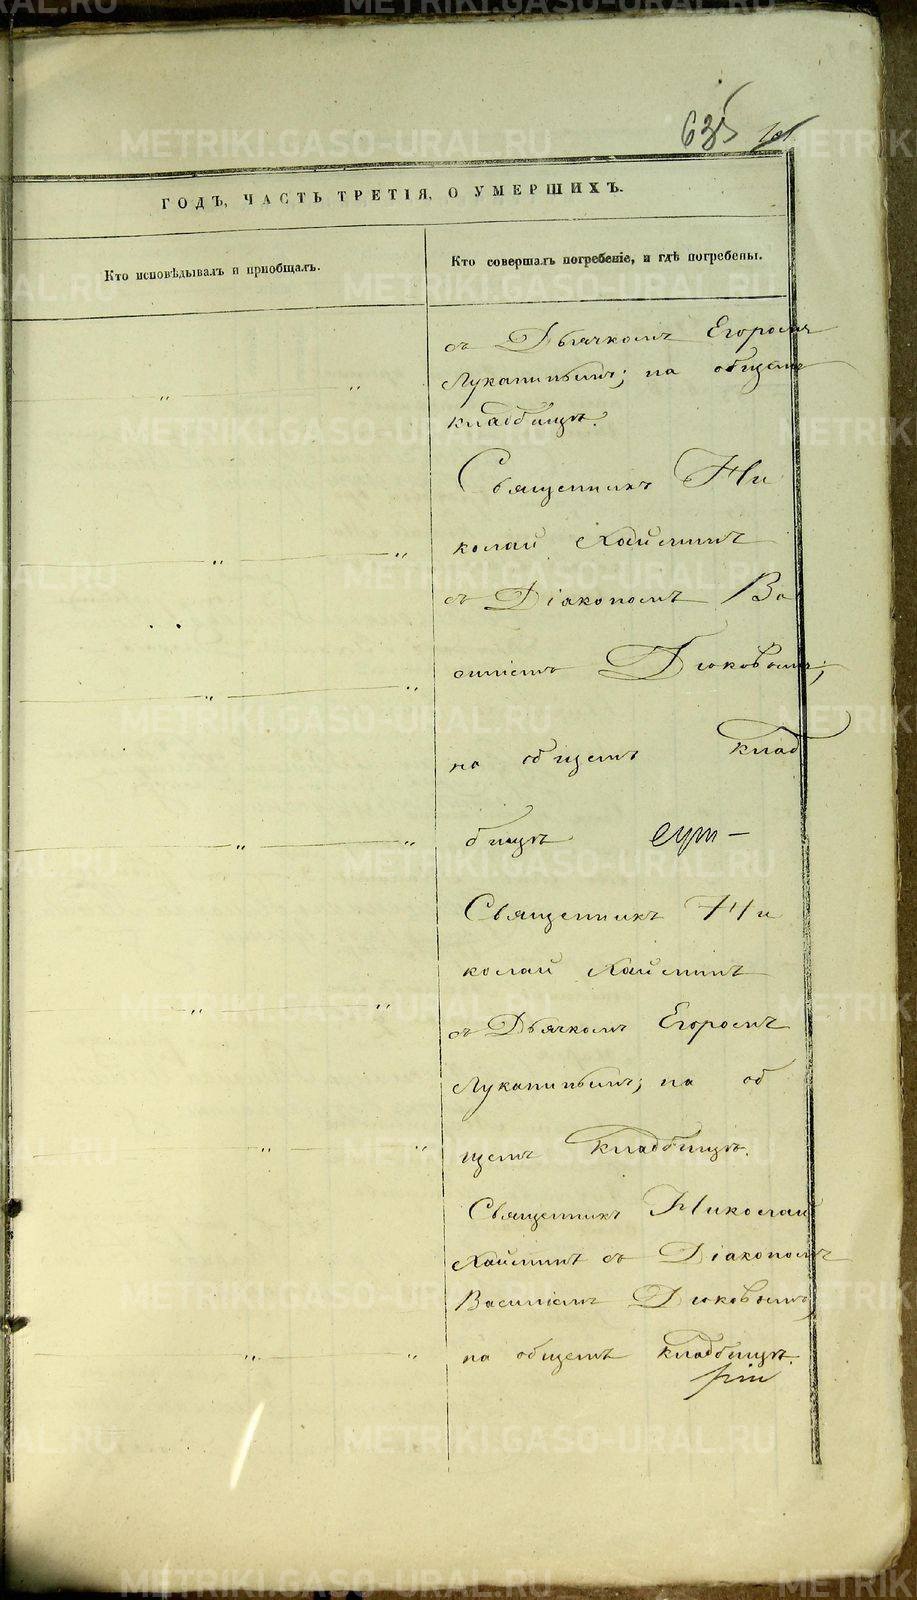 635
ГОДЪ, ЧАСТЬ ТРЕТІЯ, О УМЕРШИХЪ.
Кто исповѣдывалъ и пріобщалъ.
Кто совершалъ погребеніе, и гдѣ погребены.
съ Дьячкомъ Егоромъ
Лукапинымъ; на общемъ
кладбищѣ.
Священникъ Ни
колай Хайминъ
съ Діакономъ Ва
силіемъ Дюковымъ;
на общемъ клад
бищѣ
Священникъ Ни
колай Хайминъ
съ Дьячкомъ Егоромъ
Лукапинымъ; на об
щемъ кладбищѣ.
Священникъ Николай
Хайминъ съ Діакономъ
Василіемъ Дюковымъ,
на общемъ кладбищѣ.
METRIKI.GASO-URAL.RU